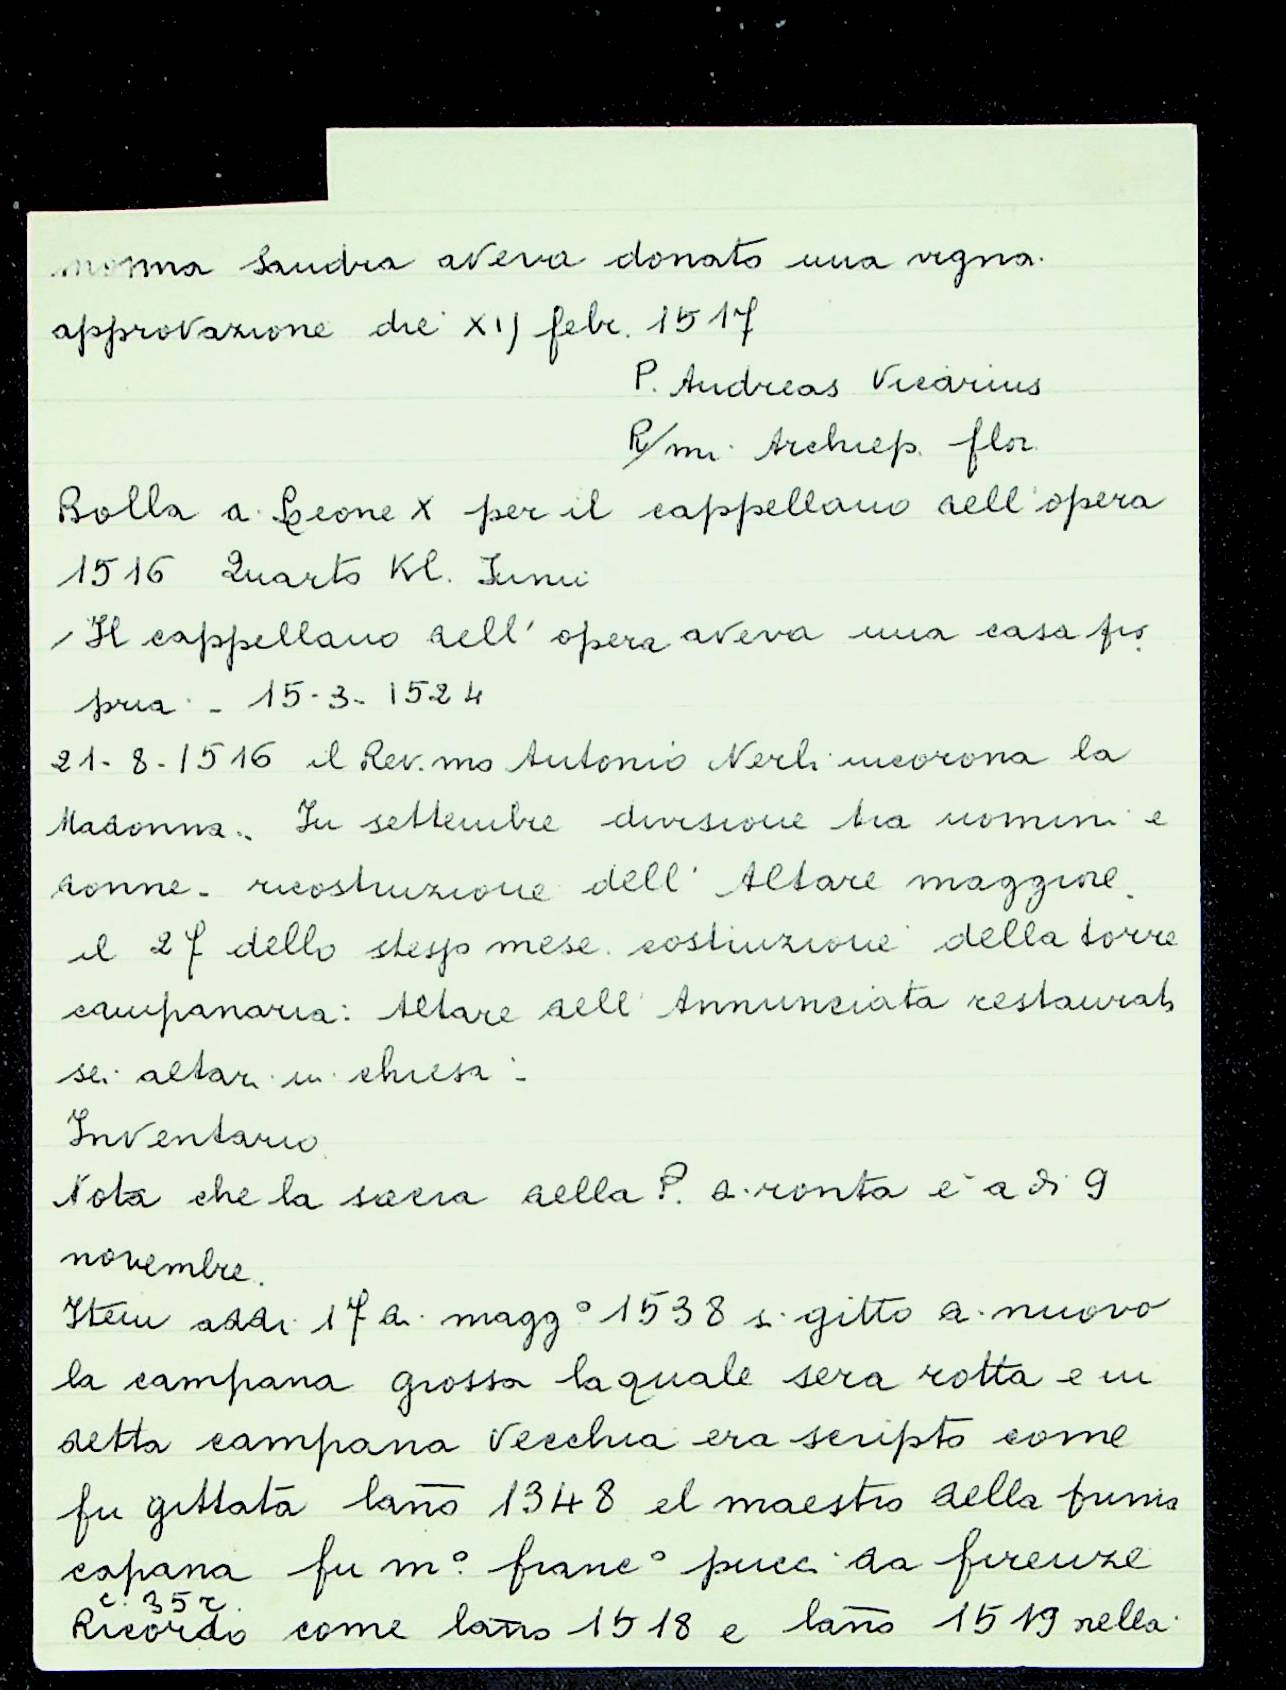 monna Sandra aveva donato una vigna.
approvazione die XIJ febr. 1517
P. Andreas Vicarius
R/mi Archiep. flor.
Bolla di Leone X per il cappellano dell'opera
1516 Quarto Kl. Junii
Il cappellano dell'opera aveva una casa pro
pria - 15-3-1524
21-8-1516 il Rev.mo Antonio Nerli incorona la
Madonna. In settembre divisione tra uomini e
donne - ricostruzione dell'Altare maggiore.
il 27 dello stesso mese costruzione della torre
campanaria: Altare dell'Annunciata restaurato
sei altari in chiesa -
Inventario
Nota che la sacra della P. di ronta è a di 9
novembre.
Item addi 17 di magg° 1538 si gitto di nuovo
la campana grossa laquale sera rotta e in
detta campana vecchia era scripto come
fu gittata lano 1348 el maestro della prima
capana fu m° franc° pucci da firenze
c. 35 r.
Ricordo come lano 1518 e lano 1519 nella